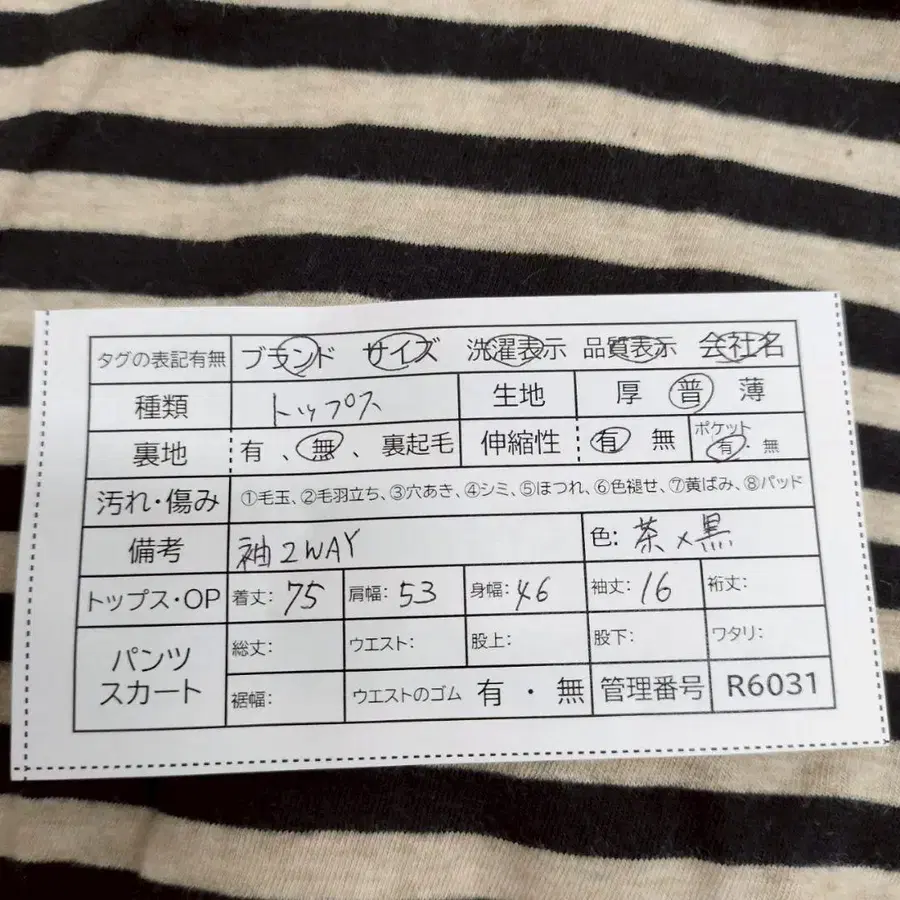 タグの表記有無 ブランド サイズ 洗濯表示 品質表示 会社名
種類 トップス 生地 厚 普 薄
裏地 有 、無 、裏起毛 伸縮性 有 無 ポケット 有・無
汚れ・傷み ①毛玉、②毛羽立ち、③穴あき、④シミ、⑤ほつれ、⑥色褪せ、⑦黄ばみ、⑧パッド
備考 袖2WAY 色: 茶×黒
トップス・OP 着丈: 75 肩幅: 53 身幅: 46 袖丈: 16 裄丈:
パンツ スカート 総丈: ウエスト: 股上: 股下: ワタリ:
裾幅: ウエストのゴム 有・無 管理番号 R6031